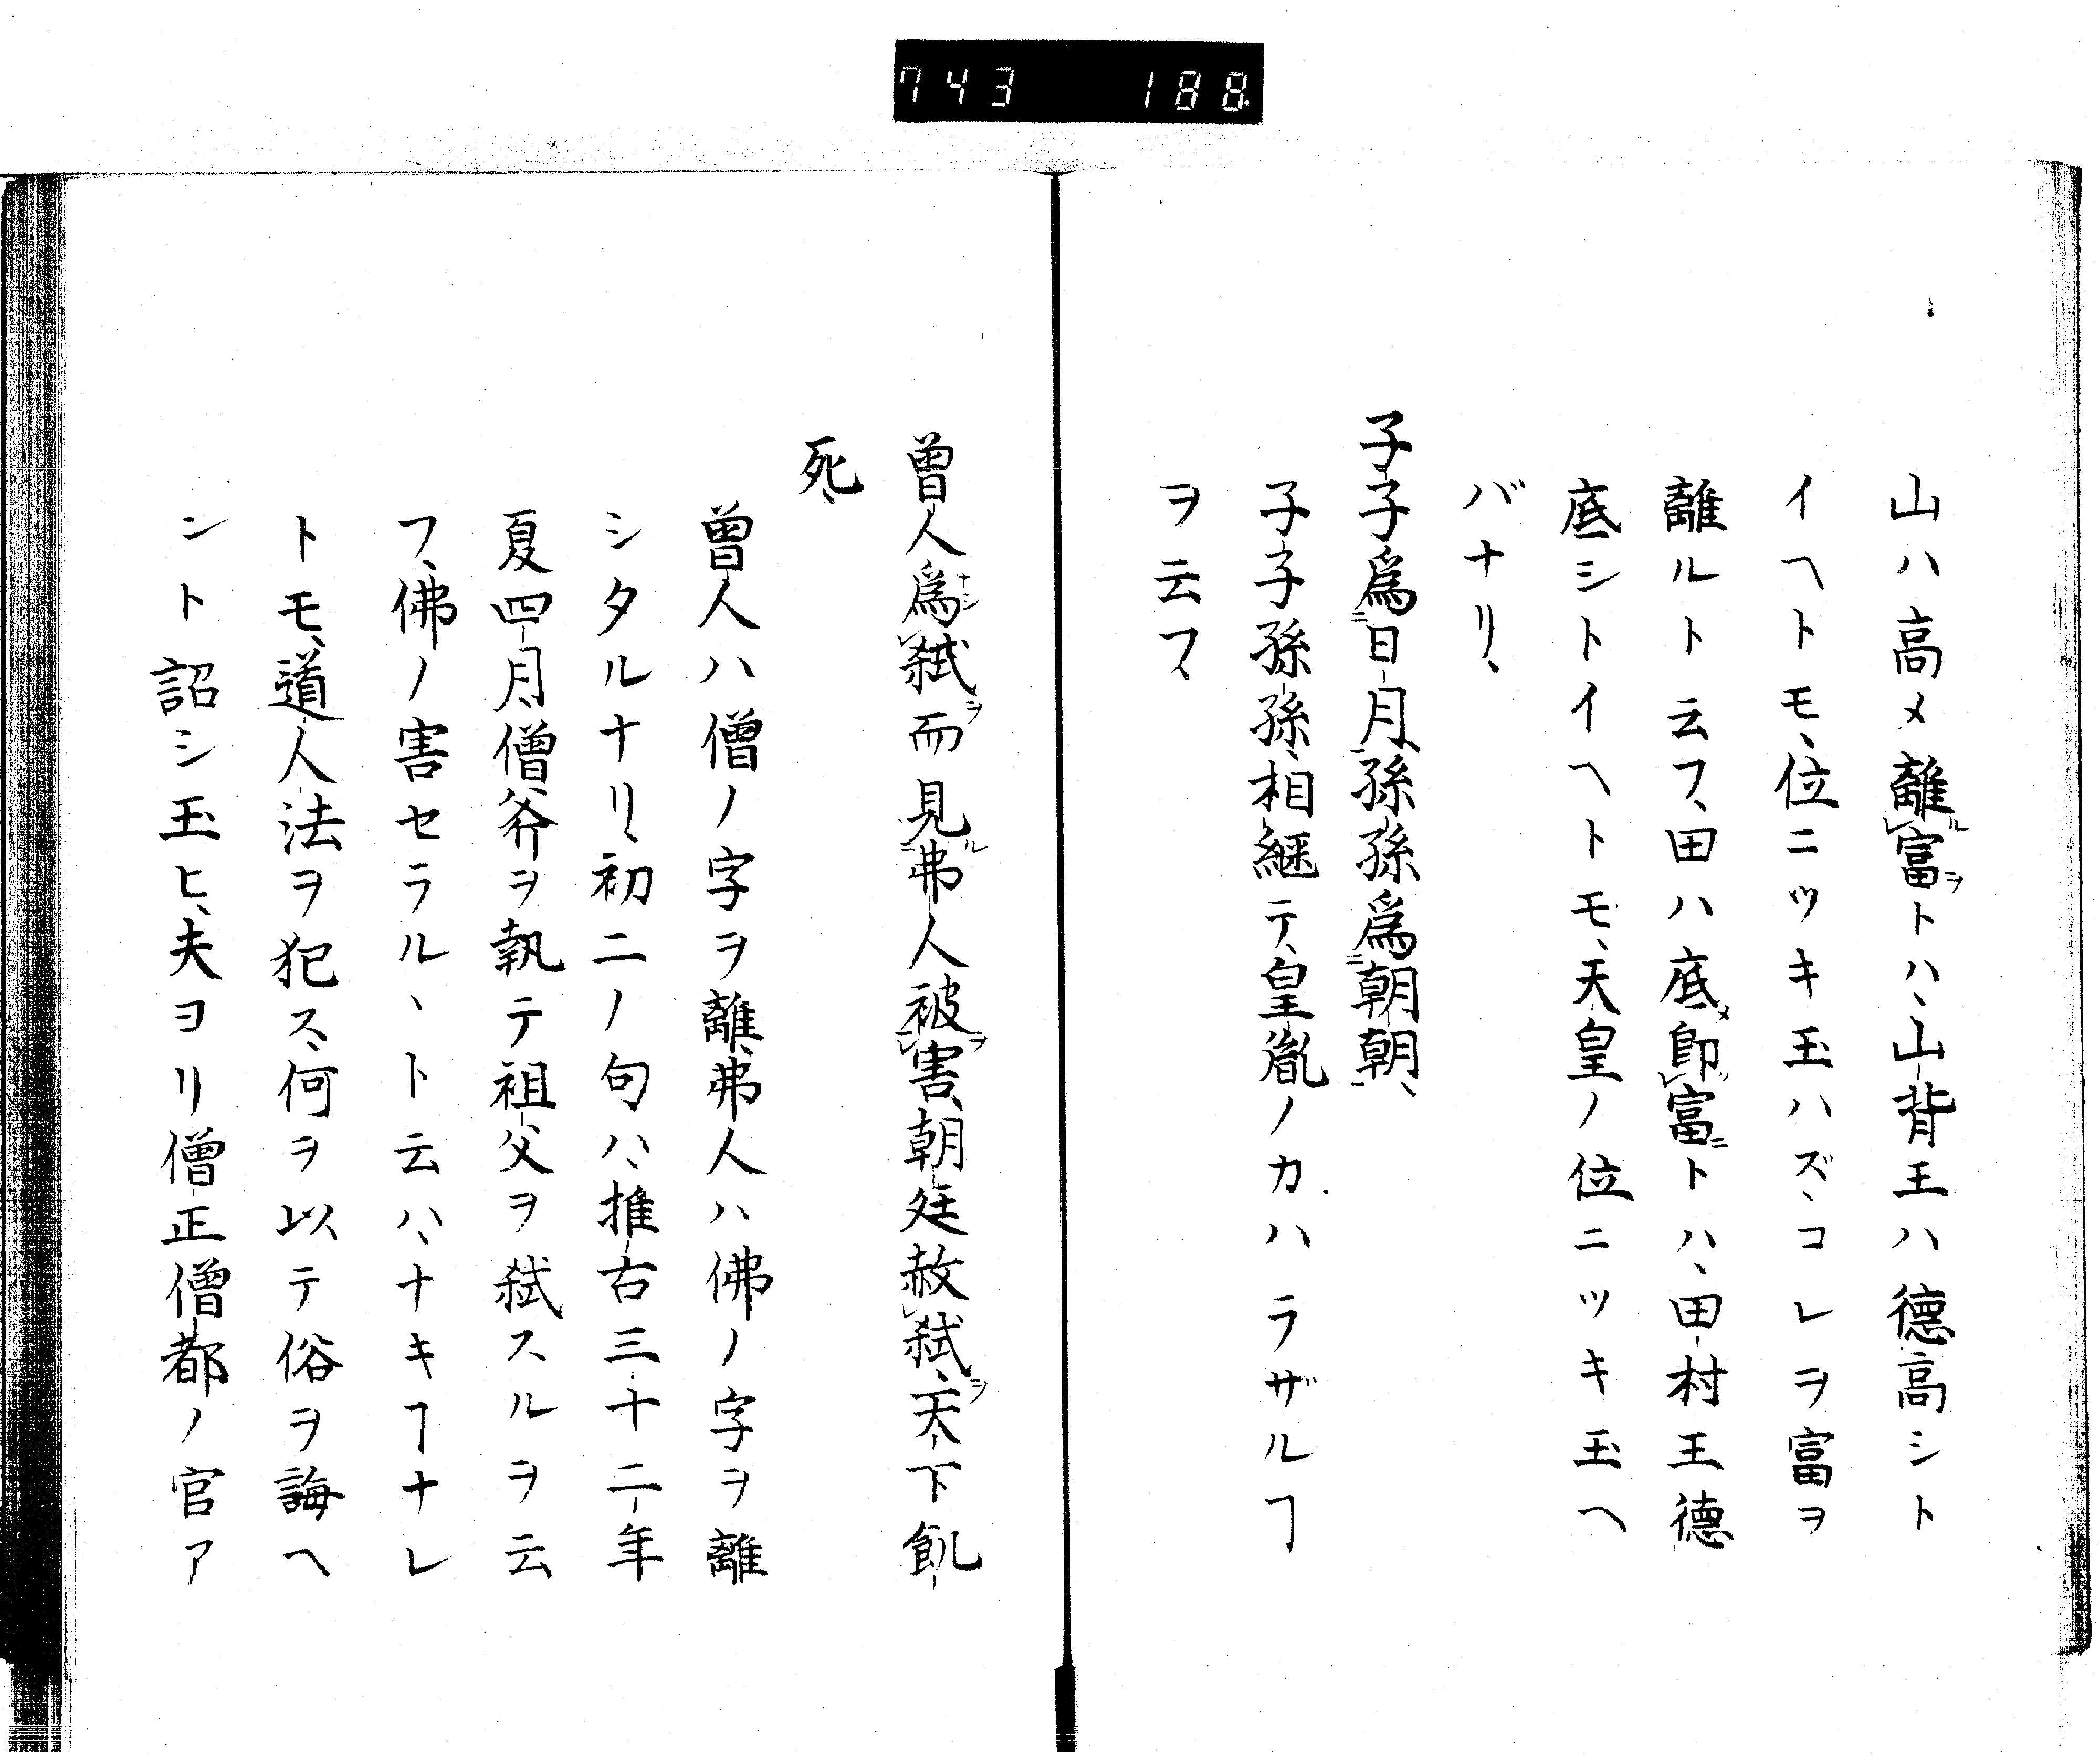 743 188
山ハ高メ離ル富ヲトハ、山背王ハ德高シト
イヘトモ、位ニツキ玉ハズ、コレヲ富ヲ
離ルト云フ、田ハ底メ即ツ富ニトハ、田村王德
底シトイヘトモ、天皇ノ位ニツキ玉ヘ
バナリ、
子子爲日月、孫孫爲朝朝、
子子孫孫、相繼テ、皇胤ノカハラザルヿ
ヲ云フ、
曽人爲ナシ弑ヲ而見ル弗人被害ヲ、朝廷赦弑ヲ、天下飢
死、
曽人ハ僧ノ字ヲ離、弗人ハ佛ノ字ヲ離
シタルナリ、初二ノ句ハ、推古三十二年
夏四月、僧斧ヲ執テ祖父ヲ弑スルヲ云
フ、佛ノ害セラルヽト云ハ、ナキヿナレ
トモ、道人法ヲ犯ス、何ヲ以テ俗ヲ誨ヘ
ント詔シ玉ヒ、夫ヨリ僧正僧都ノ官ア